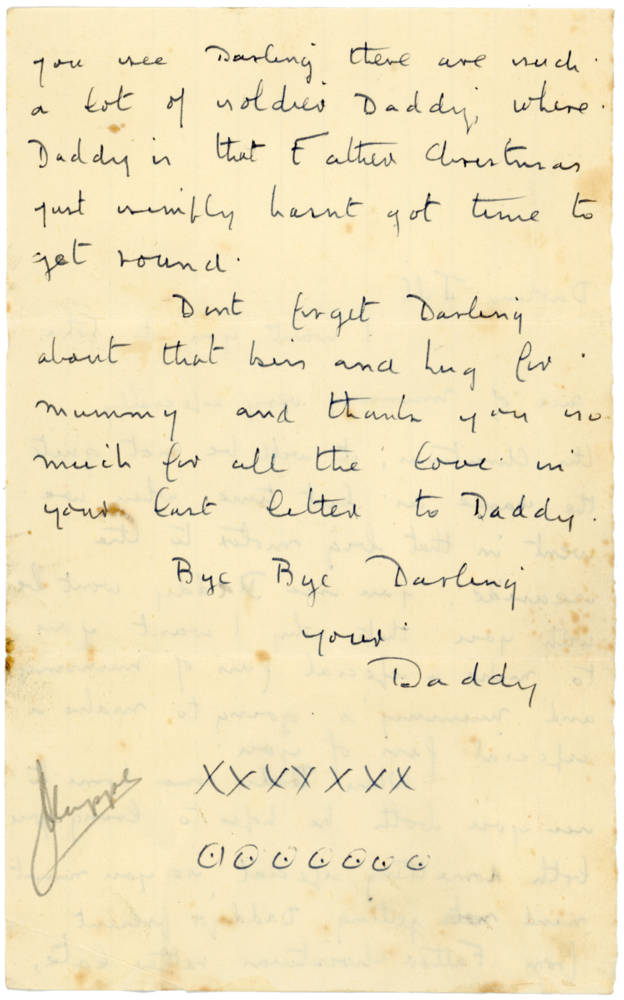 you see Darling there are such
a lot of soldier Daddy, where
Daddy is that Father Christmas
just simply hasnt got time to
get round.
Dont forget Darling
about that kiss and hug for
mummy and thank you so
much for all the love in
your last letter to Daddy.
Bye Bye Darling
your
Daddy
XXXXXXX